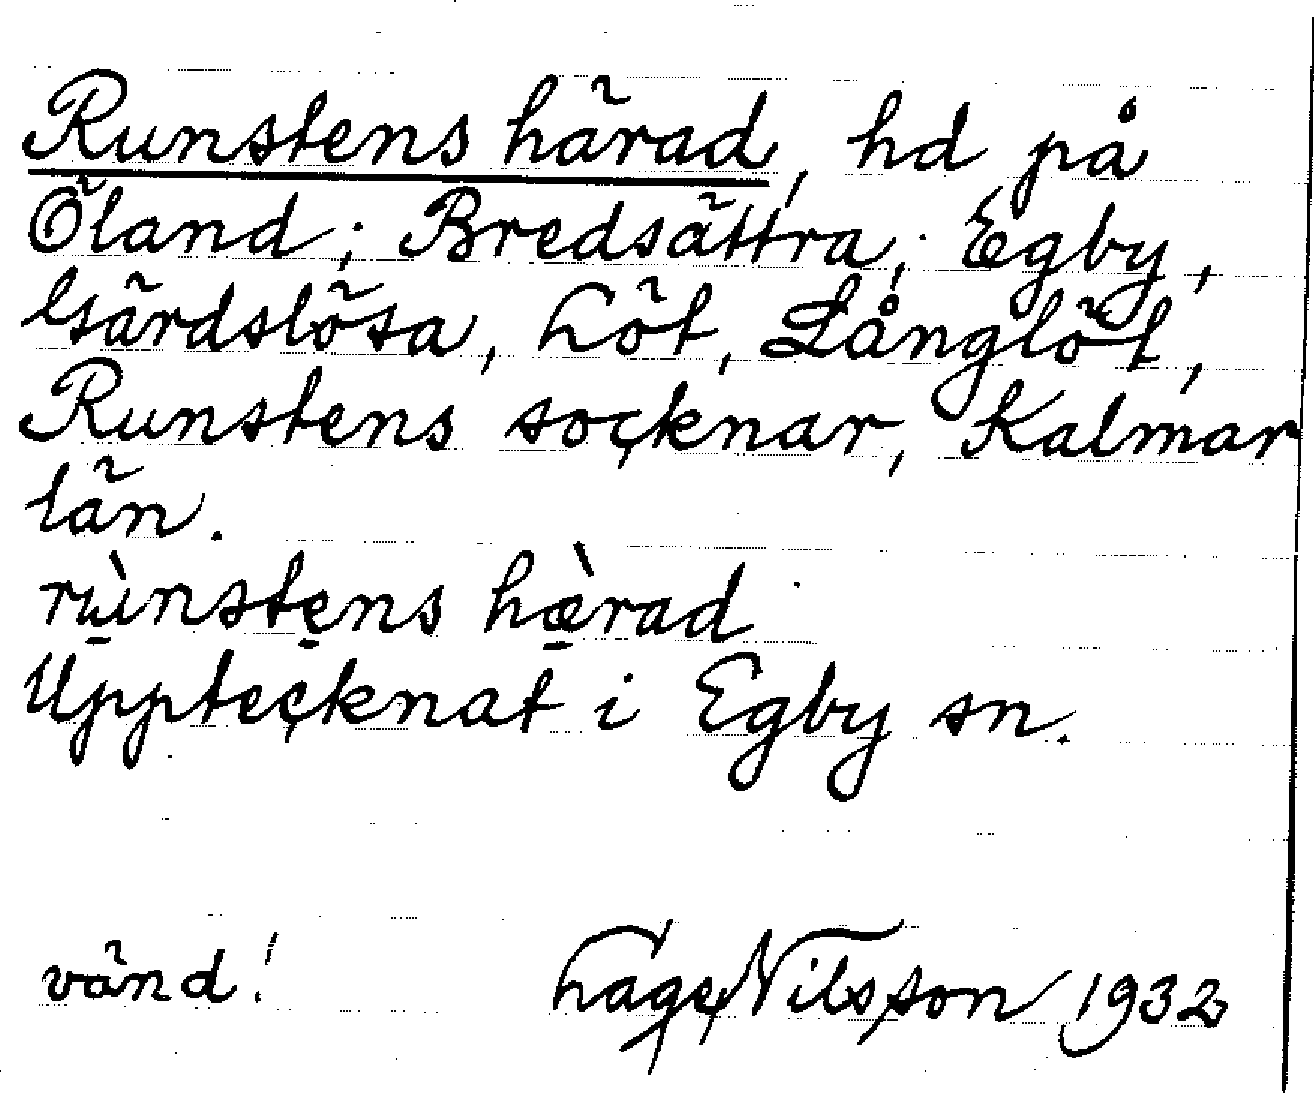 Runstens härad, hd på
Öland; Bredsättra, Egby,
Gärdslösa, Löt, Långlöt,
Runstens socknar, Kalmar
län.
rùnstens hæ̀rad
Upptecknat i Egby sn.
vänd! Lage Nilsson 1932